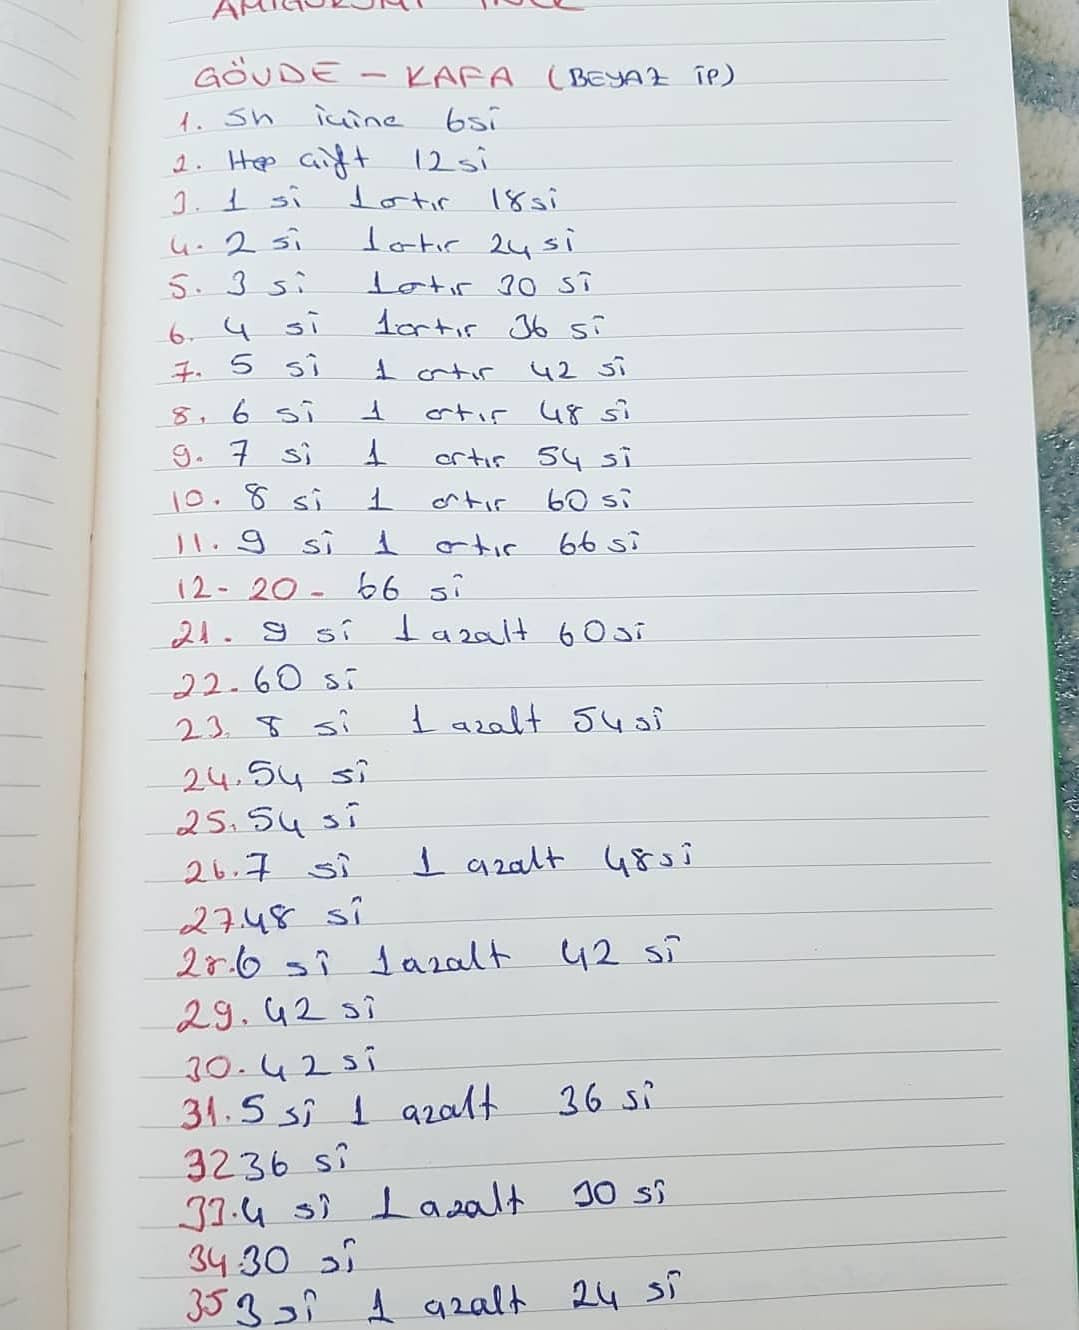 AMİGURUMİ İNEK
GÖVDE - KAFA (BEYAZ İP)
1. Sh içine 6si
2. Hep çift 12 si
3. 1 si 1 artır 18si
4. 2 si 1 artır 24 si
5. 3 si 1 artır 30 si
6. 4 si 1 artır 36 si
7. 5 si 1 artır 42 si
8. 6 si 1 artır 48 si
9. 7 si 1 artır 54 si
10. 8 si 1 artır 60 si
11. 9 si 1 artır 66 si
12-20- 66 si
21. 9 si 1 azalt 60si
22. 60 si
23. 8 si 1 azalt 54si
24. 54 si
25. 54 si
26. 7 si 1 azalt 48si
27. 48 si
28. 6 si 1 azalt 42 si
29. 42 si
30. 42 si
31. 5 si 1 azalt 36 si
32 36 si
33. 4 si 1 azalt 30 si
34. 30 si
35 3 si 1 azalt 24 si